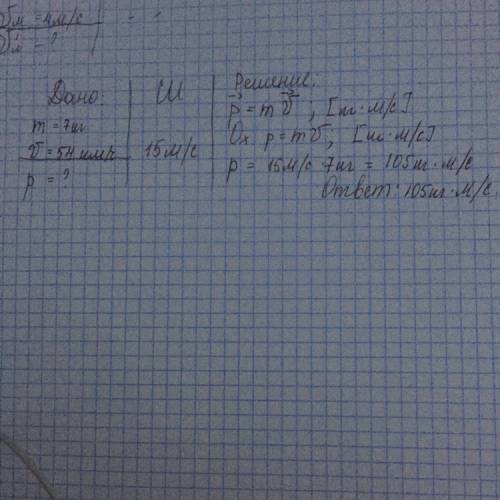 Vм = 4м/с
Vм - ?
Дано:
m = 7кг
V = 54 км/ч
p = ?
СИ
15м/с
Решение:
p = m V ; [кг · м/с]
Ox p = mV ; [кг · м/с]
p = 15м/с 7кг = 105кг · м/с
Ответ: 105кг · м/с.